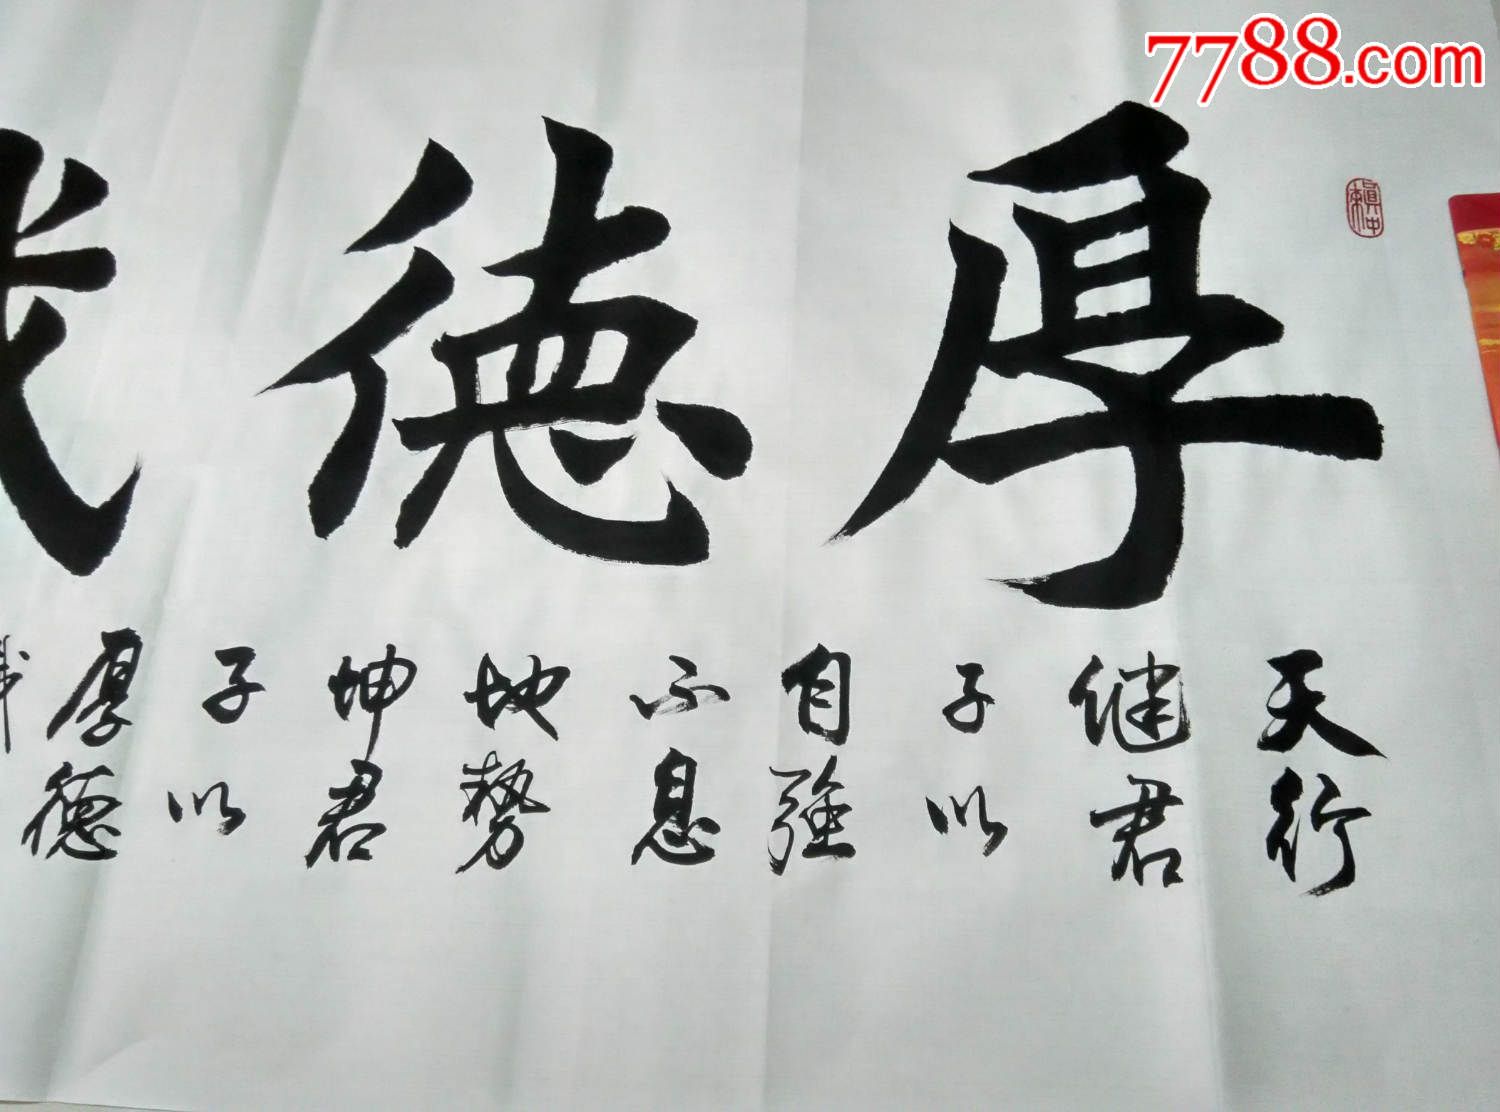 7788.com
厚德
天行
健君
子以
自強
不息
地勢
坤君
子以
厚德